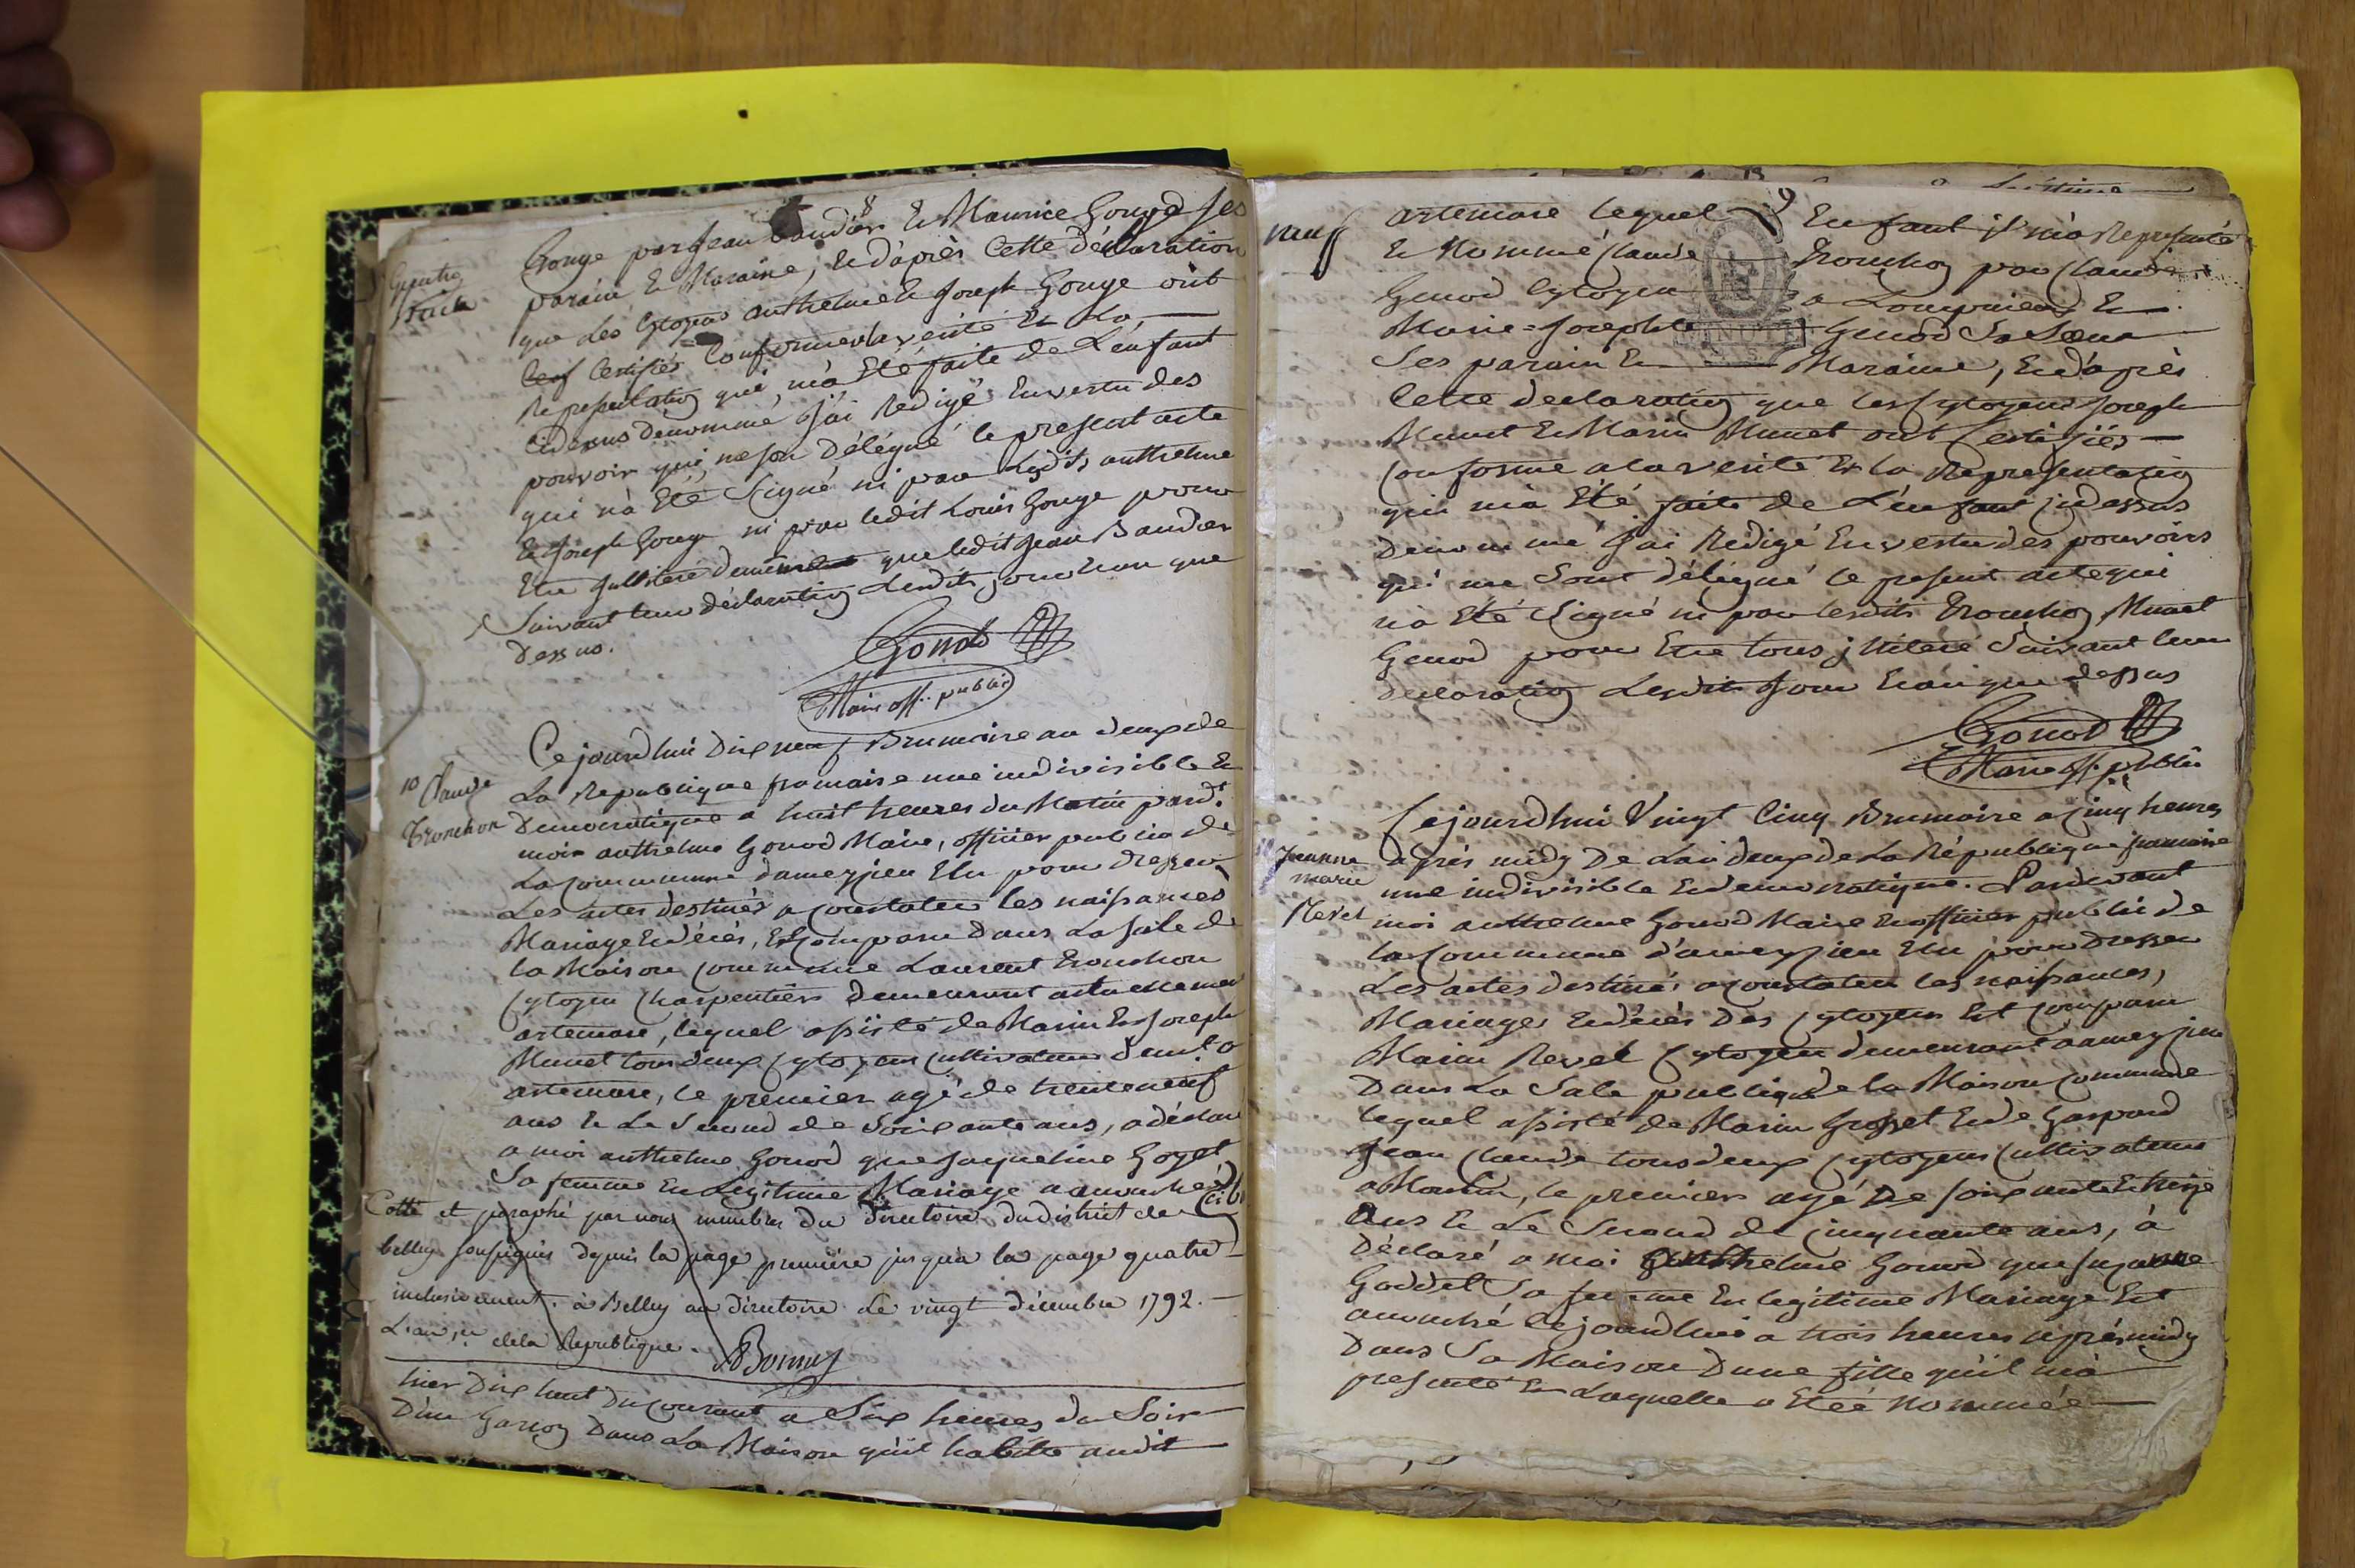 8
Gouge par Jean Baudier et Maurice Gouge ses
parain et Maraine, et d'après Cette déclaration
que les Cytoyens anthelme et Joseph Gouge ont
Certifiés Conforme a la verité et La
Representation qui m'a Eté faite de L'enfant
Cidessus dénommé J'ai Redigé En vertu des
pouvoir qui me son Délégué le present acte
qui n'a Eté Signé ni par lesdits anthelme
et Joseph Gouge ni par ledit Louis Gouge pour
Etre que ledit Jean Baudier
Suivant leur déclaration Lesdits jour et an que
Dessus.
Gonod
Maire off. public
10 Claude
Tronchon
Ce jourdhui Dix neuf Brumaire an deux de
La Republique francaise une indivisible et
Democratique a huit heures du Matin pard.t
moi anthelme Gonod Maire, officier public de
La Commune dameyzieu Elu pour dresser
Les actes destinés a constater les naissances
Mariage et décés, Est Comparu Dans La Sale de
la Maison Commune Laurent Tronchon
Cytoyen Charpentier demeurant actuellement
artemare, lequel assisté de Marin et Joseph
Munet tous deux Cytoyens Cultivateurs demt a
artemare, le premier agé de trente neuf
ans et Le Second de Soixante ans, a déclaré
a moi anthelme Gonod que Jaqueline Goyet
Sa femme En Legitime Mariage a accouché
Cotté et paraphé par nous membre du directoire du district de
belley soussignés depuis la page première jusqu'à la page quatre
inclusivement. à Belley au directoire Le vingt décembre 1792.
L'an 1er de la République.
Bonnet
hier Dix huit Du Courant a Six heures du Soir
D'un Garçon Dans La Maison qu'il habite audit
9
neuf
artemare lequel Enfant il m'a Representé
et Nommé Claude Tronchon par Claude
Genod Cytoyen a Lompnieu et
Marie=Josephte Genod Sa Sœur
Ses parain et Maraine, Et d'après
Cette declaration que les Cytoyens Joseph
Munet et Marin Munet ont Certifiés
Conforme a la verité et la Representation
qui m'a Eté faite de L'enfant Cidessus
Denommé J'ai Redigé En vertu des pouvoirs
qui me Sont délégué le present acte qui
n'a Eté Signé ni par lesdits Tronchon, Munet
Genod pour Etre tous illiteré Suivant leur
declaration Lesdits jour et an que dessus
Gonod
Maire off. public
Jeanne
marie
Revel
Cejourdhui Vingt Cinq Brumaire a Cinq heures
après midy De L'an deux de La République francaise
une indivisible et democratique. Pardevant
moi anthelme Gonod Maire et officier public de
la Commune d'ameyzieu Elu pour dresser
Les actes destinés a constater les naissances,
Mariages et décés Des Cytoyens Est Comparu
Marin Revel Cytoyen demeurant a ameyzieu
Dans La Sale publique de la Maison Commune
lequel assisté de Marin Grosset et de Gaspard
Jean Claude tous deux Cytoyens Cultivateurs
, le premier agé De Soixante et treize
ans et Le Second de Cinquante ans, à
Déclaré a moi anthelme Gonod que Suzanne
Goddet Sa femme En legitime Mariage Est
accouché Ce jourdhui a trois heures après midy
Dans Sa Maison D'une fille qu'il m'a
presenté et Laquelle a Eteé Nommée